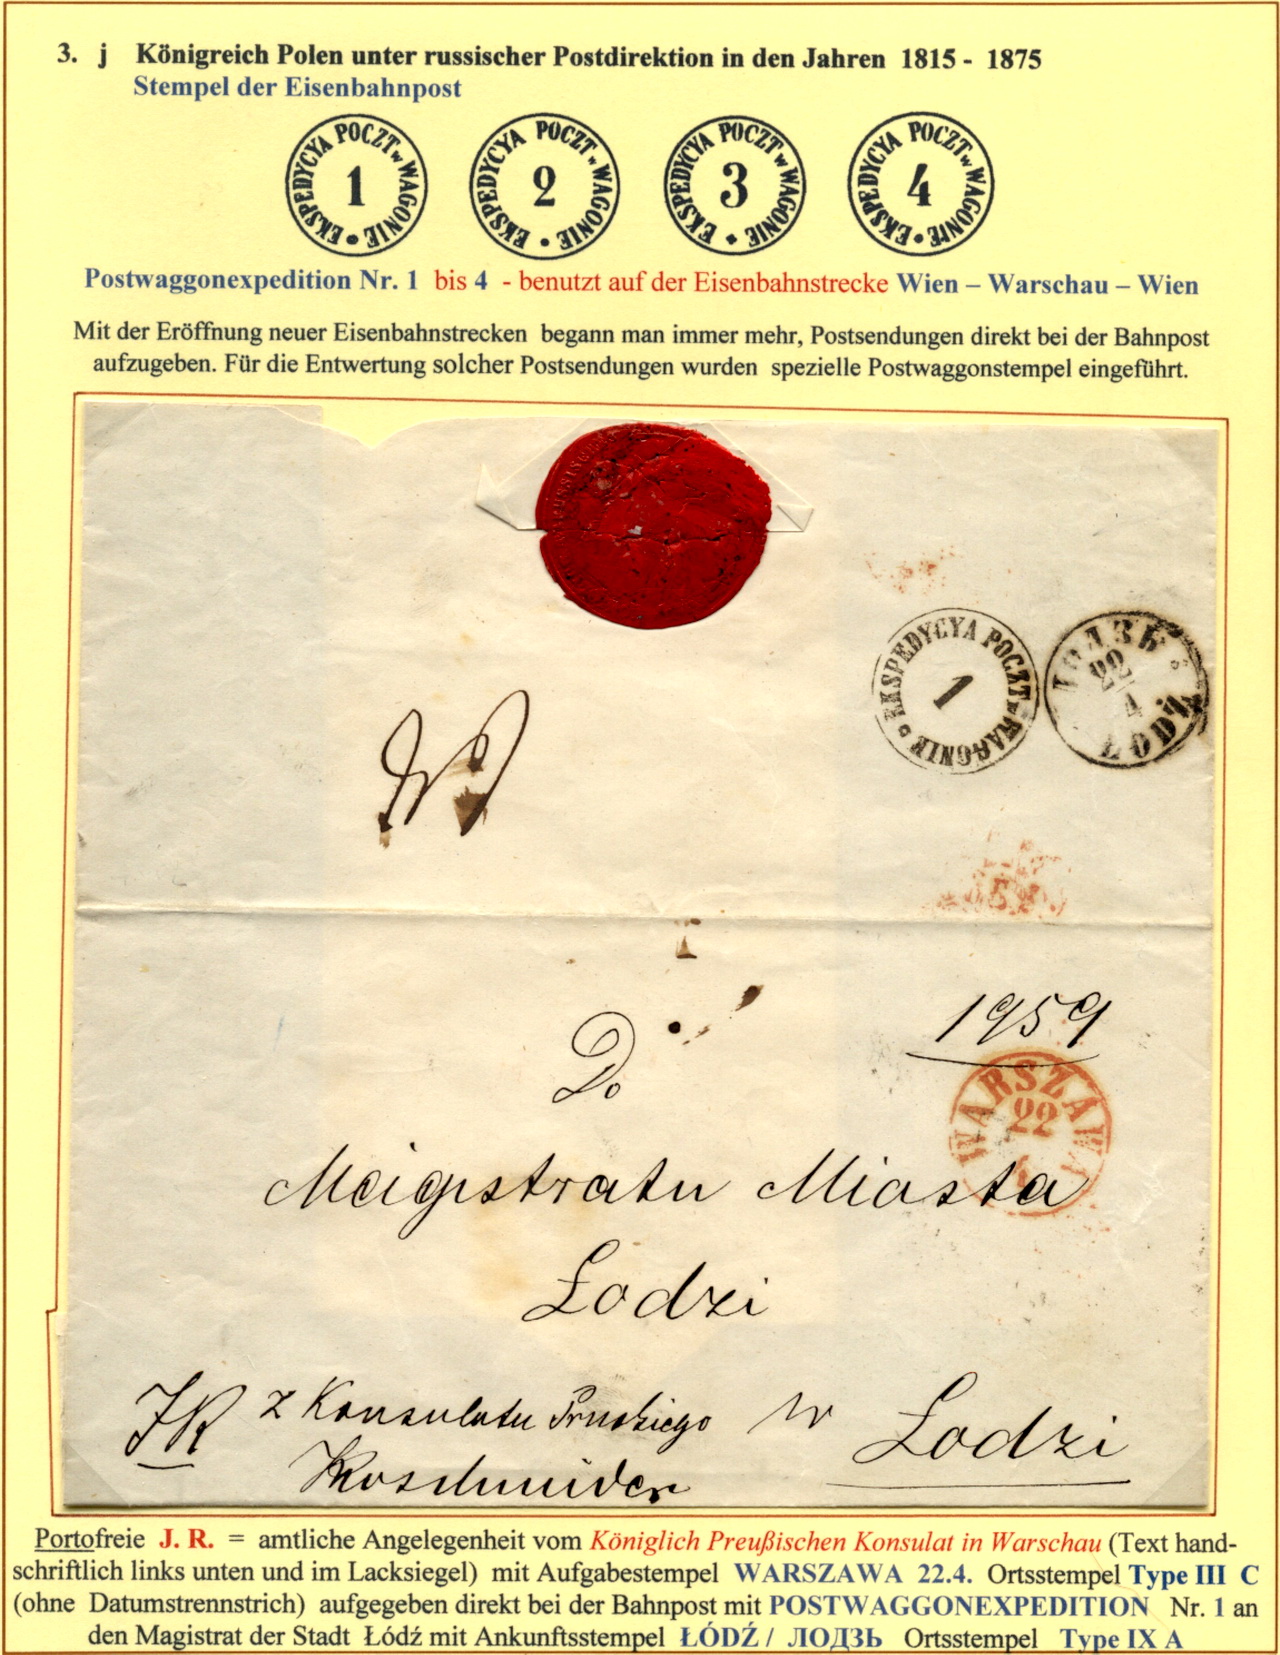 3. j Königreich Polen unter russischer Postdirektion in den Jahren 1815 - 1875
Stempel der Eisenbahnpost
EKSPEDYCYA POCZT w WAGONIE 1
EKSPEDYCYA POCZT w WAGONIE 2
EKSPEDYCYA POCZT w WAGONIE 3
EKSPEDYCYA POCZT w WAGONIE 4
Postwaggonexpedition Nr. 1 bis 4 - benutzt auf der Eisenbahnstrecke Wien – Warschau – Wien
Mit der Eröffnung neuer Eisenbahnstrecken begann man immer mehr, Postsendungen direkt bei der Bahnpost
aufzugeben. Für die Entwertung solcher Postsendungen wurden spezielle Postwaggonstempel eingeführt.
EKSPEDYCYA POCZT w WAGONIE 1
ЛОДЗЬ
22
4
ŁÓDŹ
1959
WARSZAWA
22
4
Do
Magistratu Miasta
Łodzi
JR z Konsulatu Pruskiego w Łodzi
Portofreie J. R. = amtliche Angelegenheit vom Königlich Preußischen Konsulat in Warschau (Text hand-
schriftlich links unten und im Lacksiegel) mit Aufgabestempel WARSZAWA 22.4. Ortsstempel Type III C
(ohne Datumstrennstrich) aufgegeben direkt bei der Bahnpost mit POSTWAGGONEXPEDITION Nr. 1 an
den Magistrat der Stadt Łódź mit Ankunftsstempel ŁÓDŹ / ЛОДЗЬ Ortsstempel Type IX A